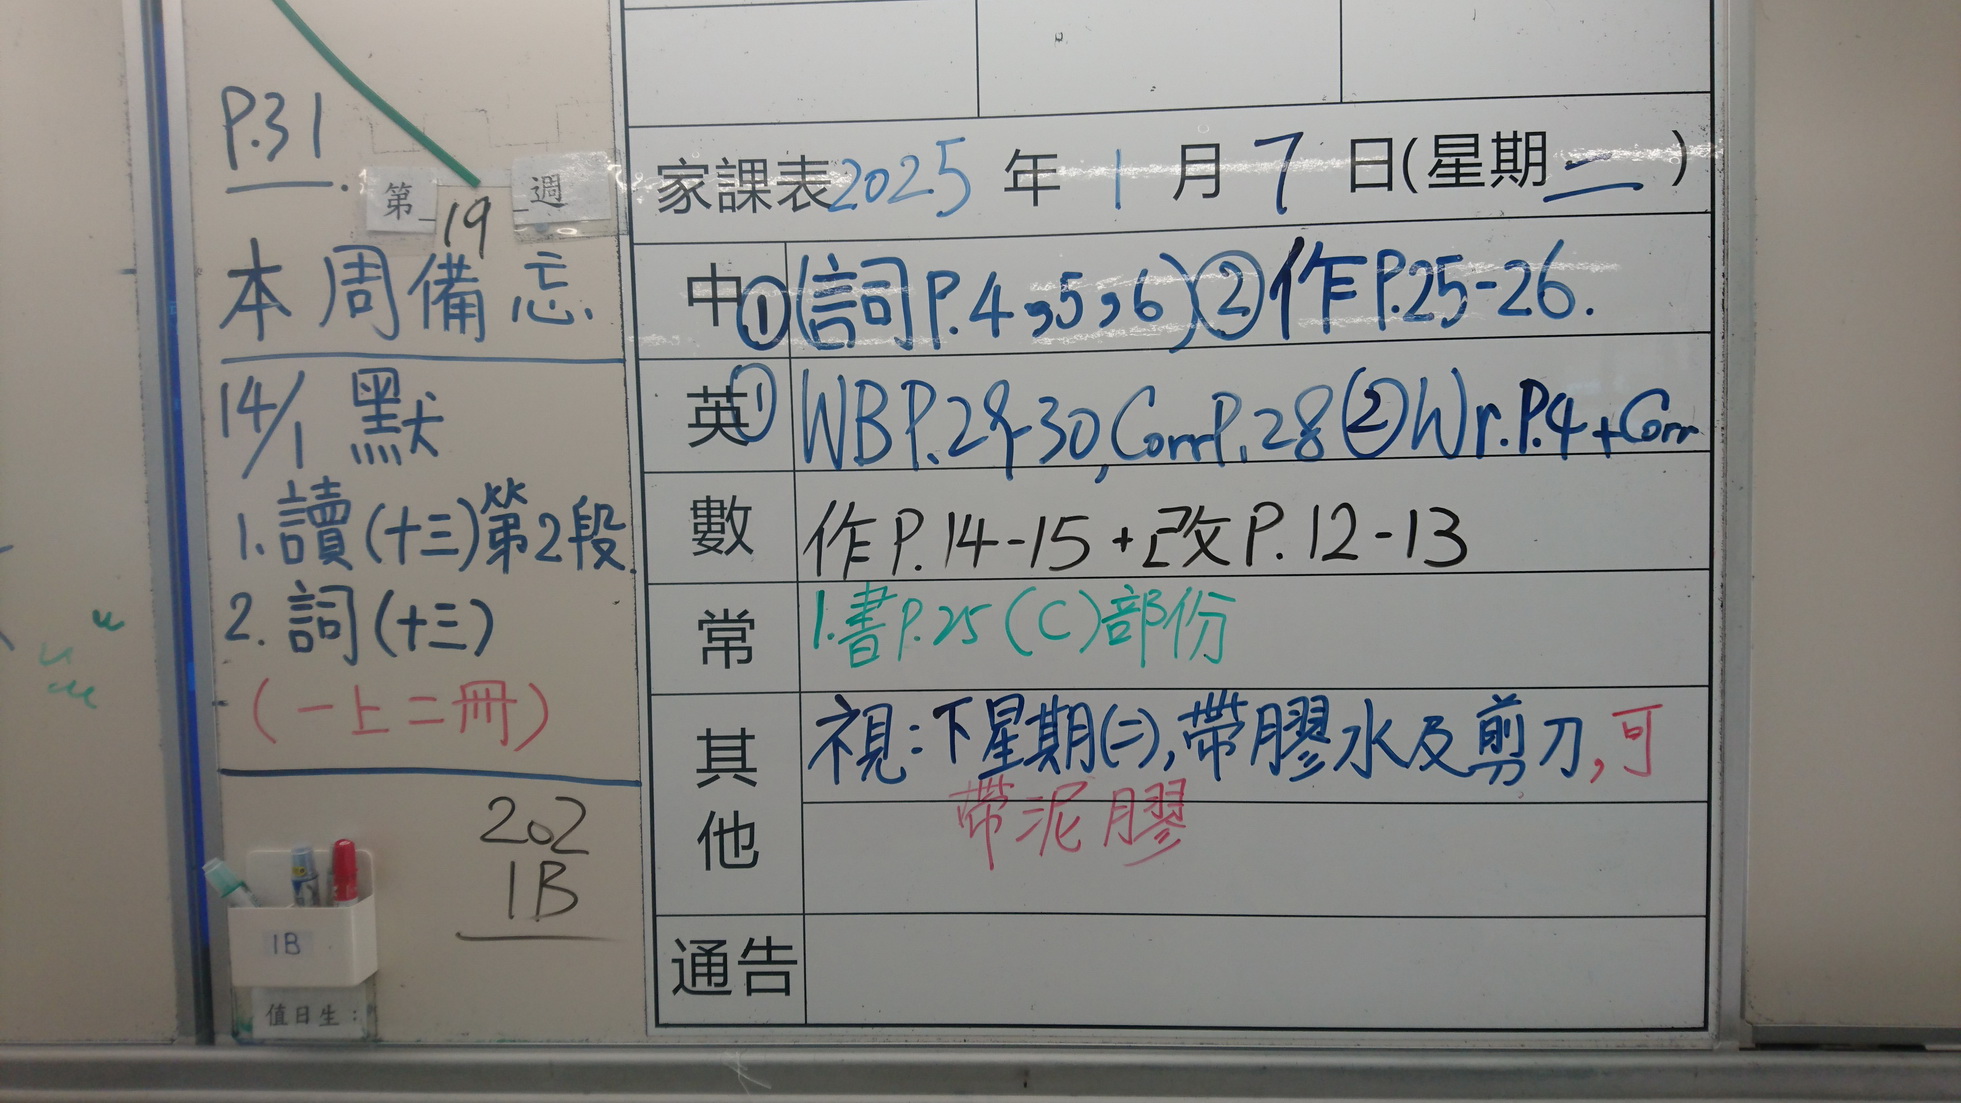 P.31
第 19 週
本周備忘
14/1 默
1. 讀(十三)第2段
2. 詞(十三)
(一上二冊)
202
1B
1B
值日生：
家課表 2025 年 1 月 7 日(星期二)
中 ①(詞P.4,5,6)②作P.25-26.
英 ①WB P.29-30, Corr P.28 ②Wr. P.4+Corr
數 作P.14-15+改P.12-13
常 1.書P.25(C)部份
其他 視:下星期(二),帶膠水及剪刀,可
帶泥膠
通告